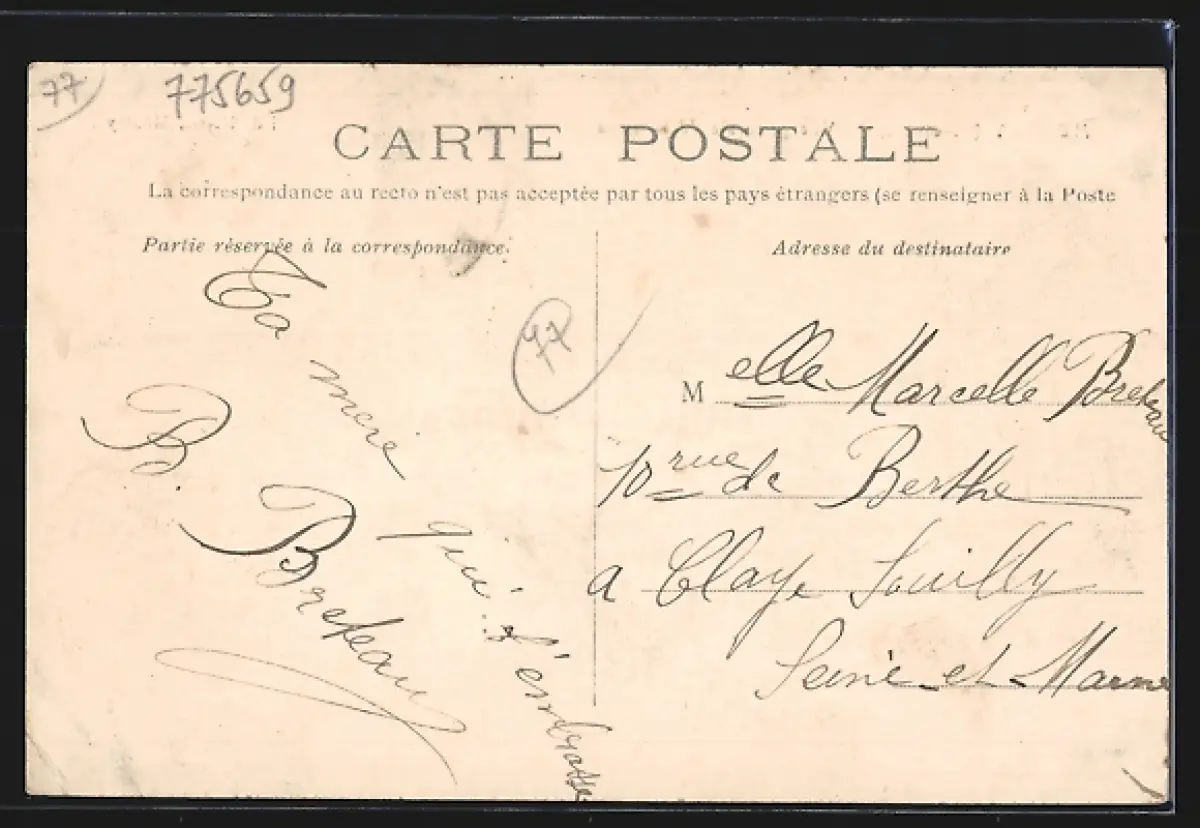 77
775659
CARTE POSTALE
La correspondance au recto n'est pas acceptée par tous les pays étrangers (se renseigner à la Poste
Partie réservée à la correspondance.
Adresse du destinataire
Ta mere
qui t'embrasse
B. Breteau
77
M elle Marcelle Breteau
10 rue de Berthe
a Claye Souilly
Seine et Marne